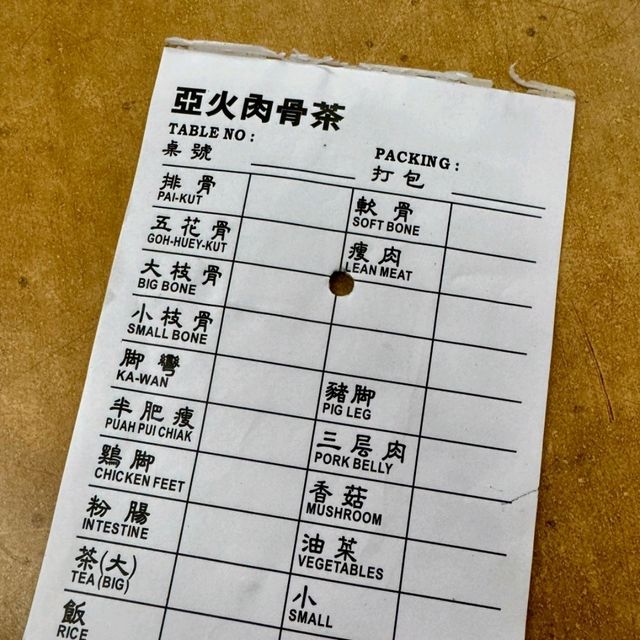 亞火肉骨茶
TABLE NO :
桌號
PACKING :
打包
排骨
PAI-KUT
軟骨
SOFT BONE
五花骨
GOH-HUEY-KUT
瘦肉
LEAN MEAT
大枝骨
BIG BONE
小枝骨
SMALL BONE
脚彎
KA-WAN
豬脚
PIG LEG
半肥瘦
PUAH PUI CHIAK
三层肉
PORK BELLY
鶏脚
CHICKEN FEET
香菇
MUSHROOM
粉腸
INTESTINE
油菜
VEGETABLES
茶(大)
TEA (BIG)
小
SMALL
飯
RICE